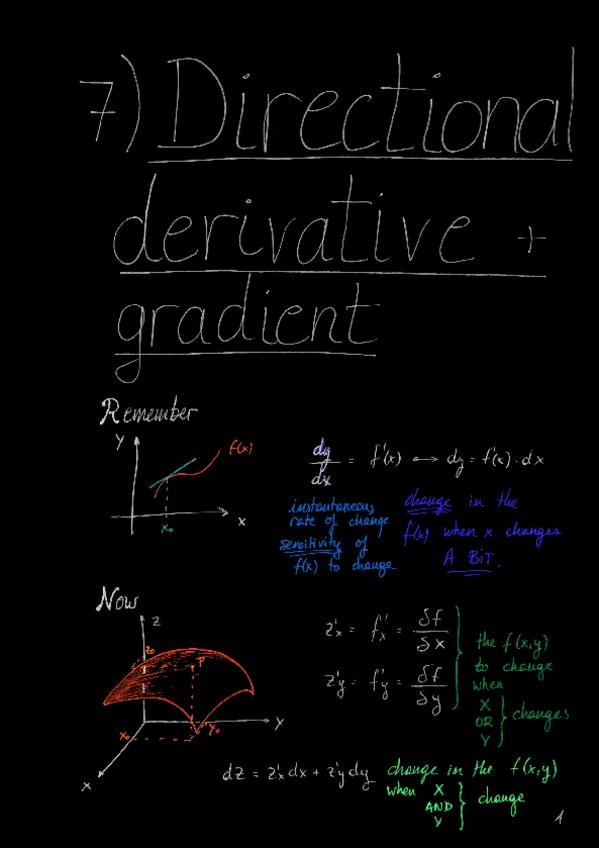 7) Directional
derivative +
gradient
Remember
y
f(x)
x₀
x
dy/dx = f'(x) ⟷ dy = f'(x) · dx
instantaneous
rate of change
sensitivity of
f(x) to change
change in the
f(x) when x changes
A BIT.
Now
z
z₀
P
x₀
y₀
y
x
z'x = f'x = δf/δx
z'y = f'y = δf/δy
the f(x,y)
to change
when
X
OR
Y
} changes
dz = z'x dx + z'y dy
change in the f(x,y)
when X
AND
Y
} change
1